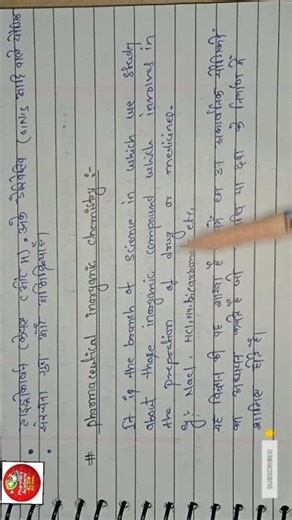 हाइड्रोकार्बन (केवल C और H), और डेरिवेटिव (O,N,S आदि वाले यौगिक
संरचना गुण और अभिक्रियाएँ)
# Pharmaceutical inorganic chemistry :-
It is the branch of science in which we study
about those inorganic compound which involves in
the prepration of drug or medicines.
Eg: Nacl, Hcl, bicarbon etc.
यह विज्ञान की वह शाखा है हम उन अकार्बनिक यौगिकों
का अध्ययन करते हैं जो या दवा के निर्माण में
शामिल होते हैं।
SUBSCRIBE